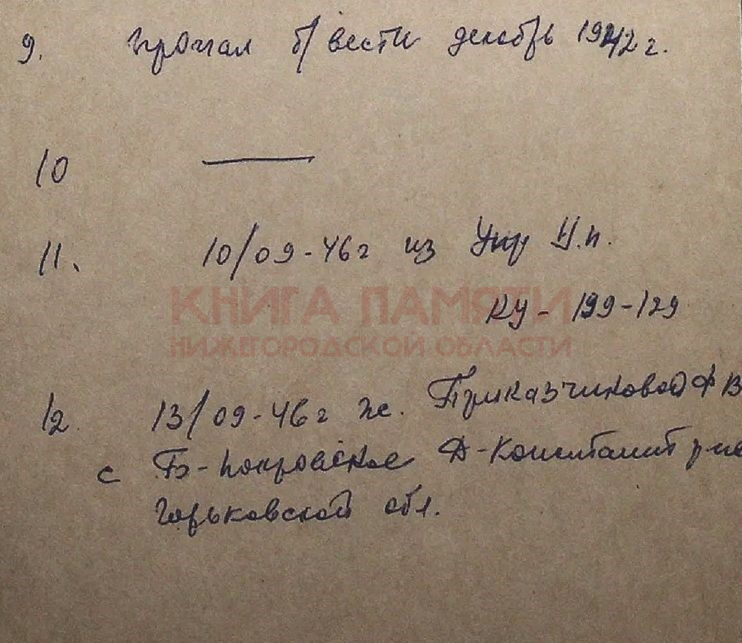 9. пропал б/вести декабрь 1942 г.
10 ———
11. 10/09-46г из Упр Н.п.
КНИГА ПАМЯТИ
КУ - 199-129
НИЖЕГОРОДСКОЙ ОБЛАСТИ
12. 13/09-46г ж. Приказчиковой Ф В
с Б-Покровское Д-Констант р-не
Горьковской обл.